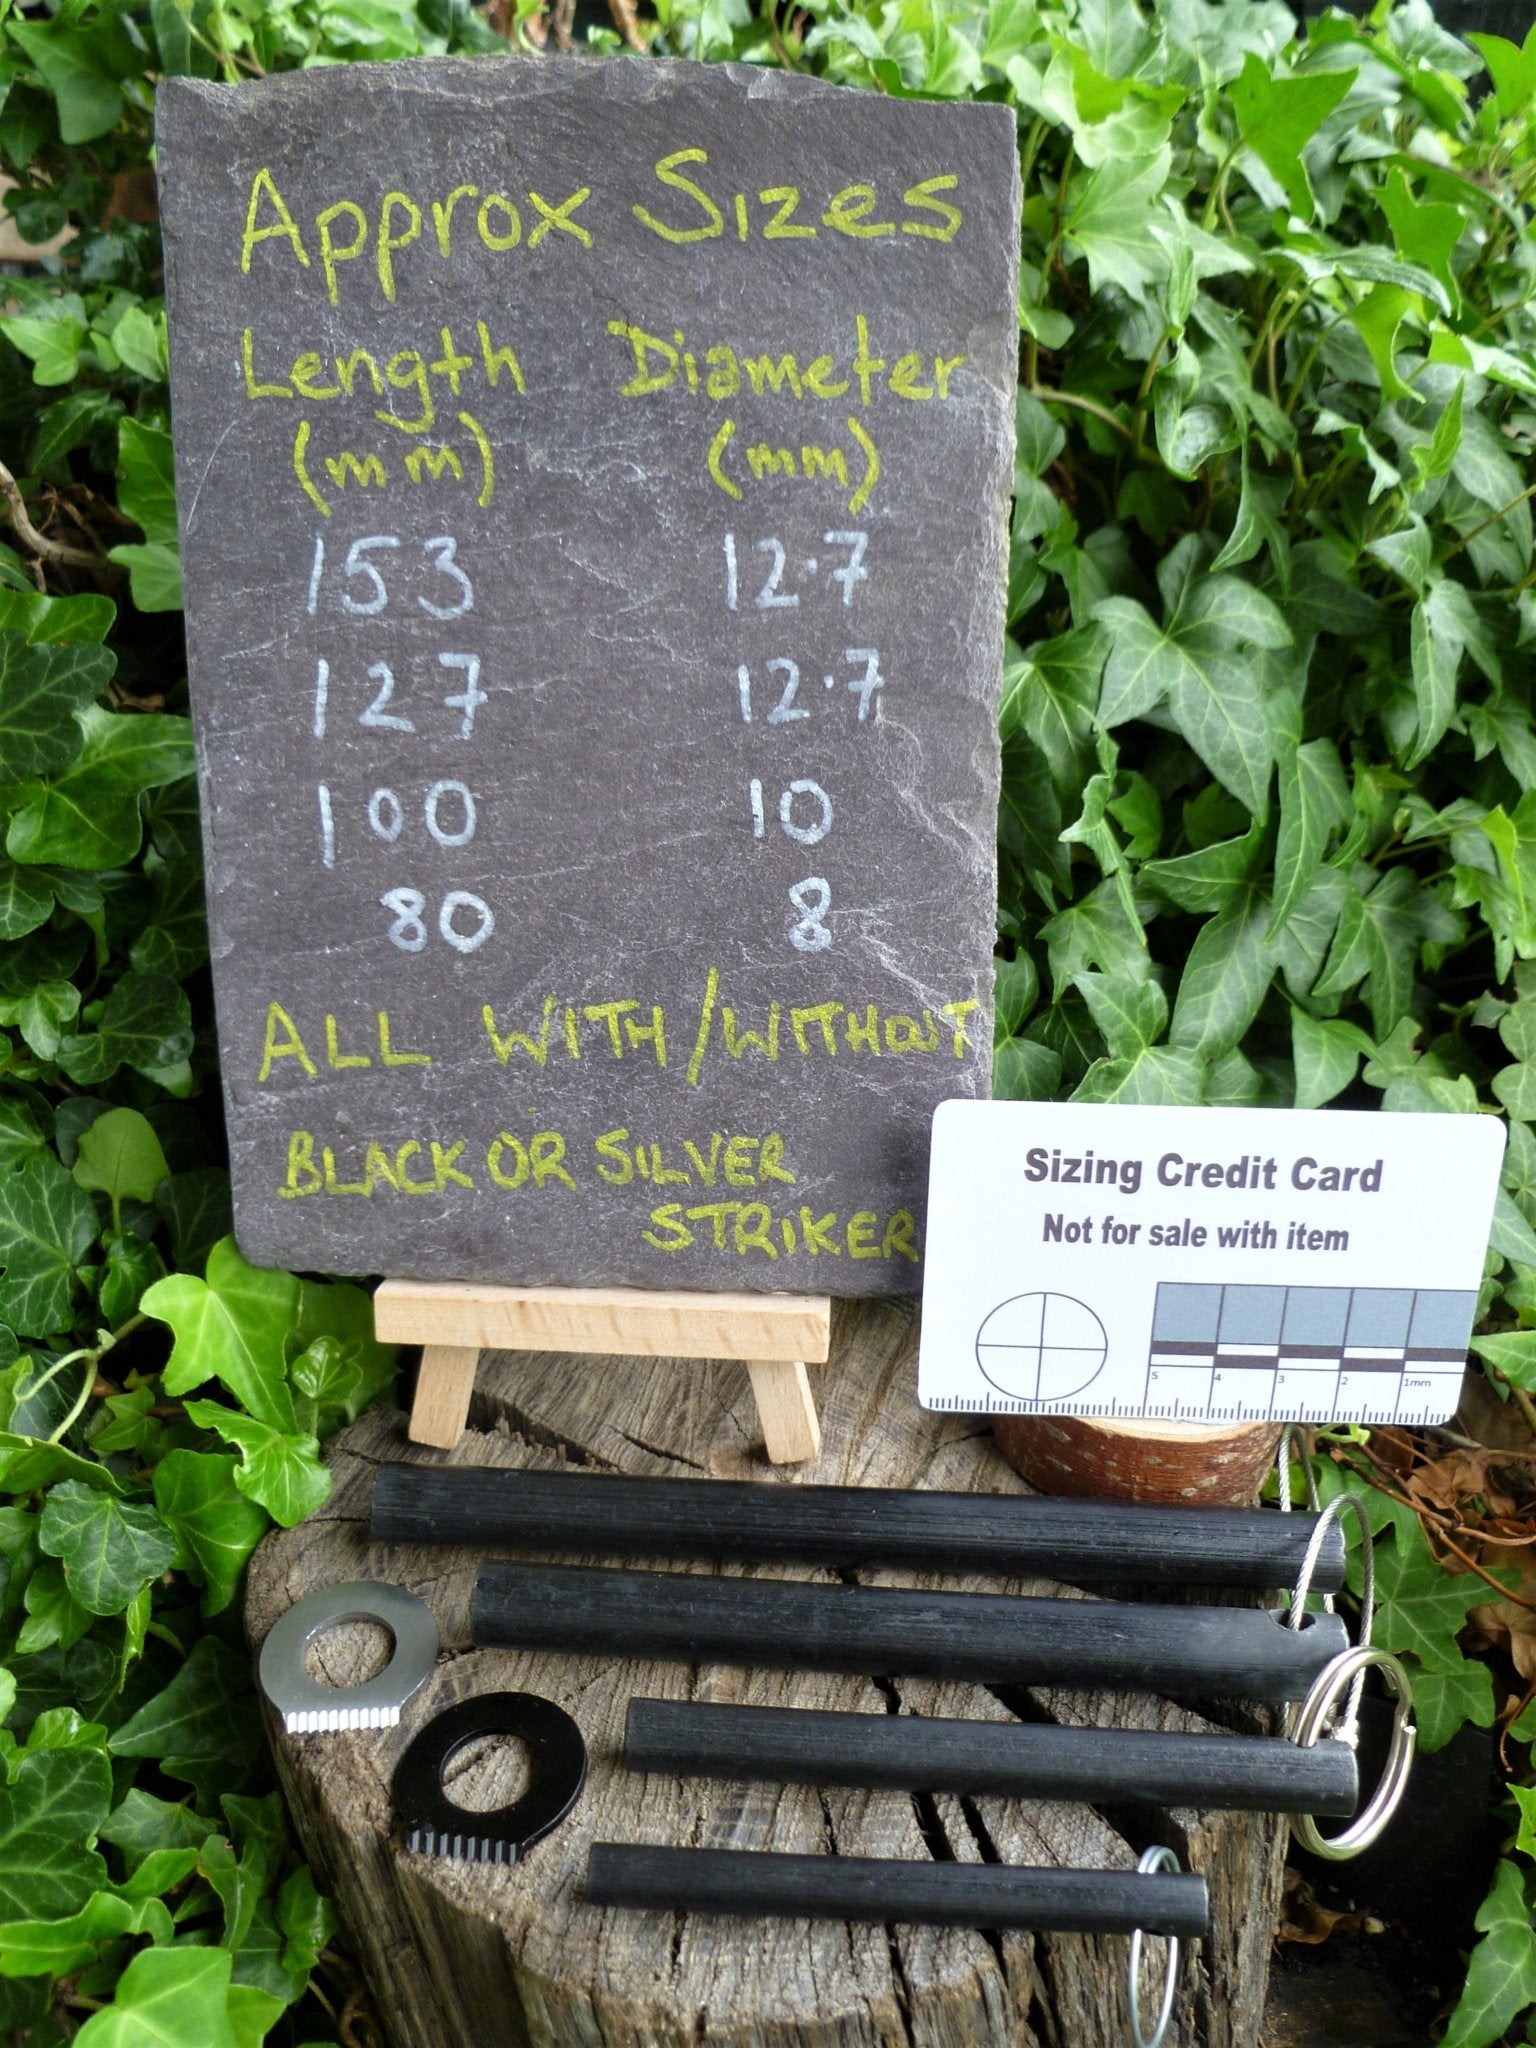 Approx Sizes
Length Diameter
(mm) (mm)
153 12.7
127 12.7
100 10
80 8
ALL WITH/WITHOUT
BLACK OR SILVER
STRIKER
Sizing Credit Card
Not for sale with item
5 4 3 2 1mm